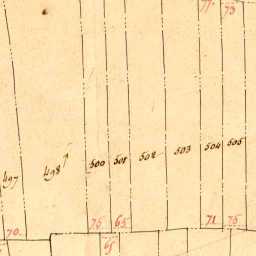 77. 73
497 498 500 501 502 503 504 505
70. 75 65 71 75
65